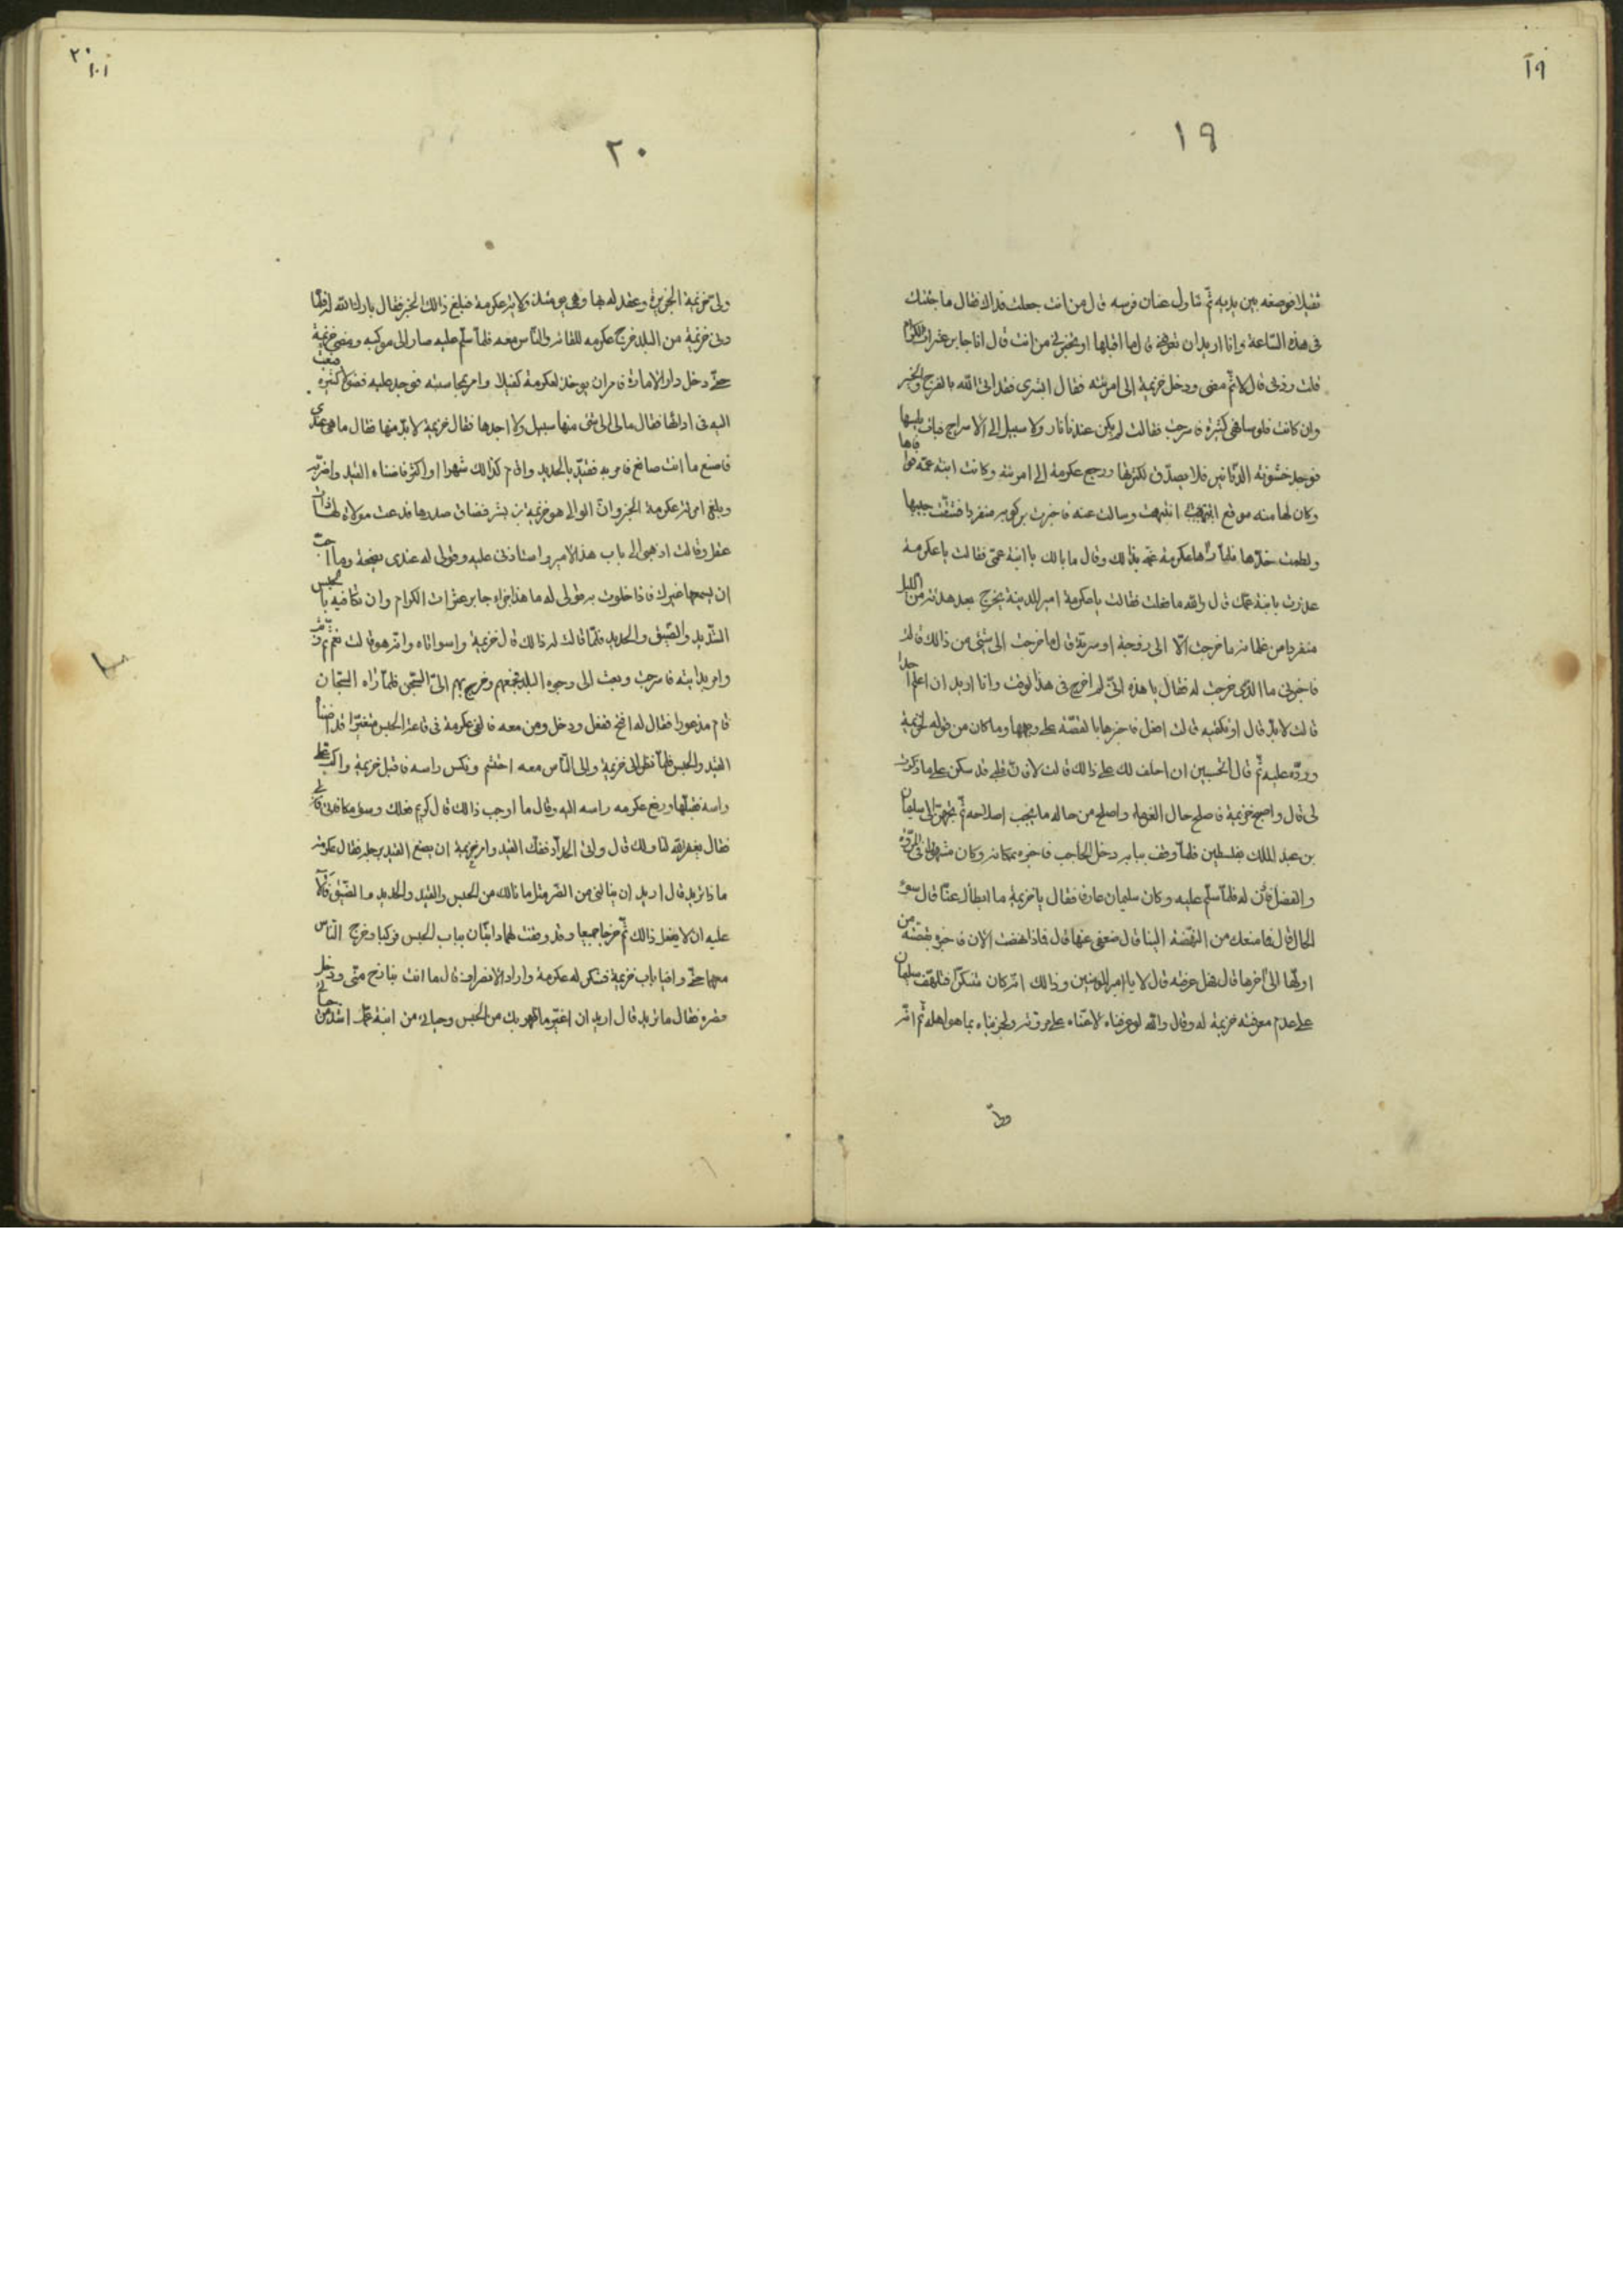 ١٩
١٩
ثقيلا فوضعه بين يديه ثم تناول عنان فرسه قال من انت جعلت فداك فقال ما جئتك
فى هذه الساعة وانا اريد ان تعرفنى قال ما اقبلها او تخبرنى من انت قال انا جابر عثرات الكرام
قلت زدنى قال لا ثم مضى ودخل خزيمة الى امرئته فقال ابشرى فقد اتى الله بالفرج والخير
وان كانت فلوسا فهى كثيرة فاسرجى فقالت لم يكن عندنا نار ولا سبيل الى الاسراج فبات يلمسها
فوجد خشونة الدنانير فلا يصدق لكثرتها ورجع عكرمة الى امرئته وكانت ابنة عمه
وكان لها منه موقع انتبهت وسالت عنه فاخبرت بركوبه منفردا فشقت جيبها
ولطمت خدها فلما راها عكرمة غمه بذالك وقال ما بالك يا ابنة عمى فقالت يا عكرمة
غدرت بابنة عمك قال والله ما فعلت فقالت يا عكرمة امير المدينة يخرج بعد هدئة من الليل
منفردا من غلمانه ما خرجت الا الى زوجة او سرية قال ما خرجت الى شئ من ذالك قالت
فاخبرنى ما الذى خرجت له فقال يا هذه انى لم اخرج فى هذ الوقت وانا اريد ان اعلم احدا
قالت لا بد قال او تكتميه قالت افعل فاخبرها بالقصة على وجهها وما كان من قوله لخزيمة
ورده عليه ثم قال اتحبين ان احلف لك على ذالك قالت لا قلبى قد سكن على ما ذكرت
لى قال واصبح خزيمة فاصلح حال الغرماء واصلح من حاله ما يجب اصلاحه ثم تجهز الى سليمان
بن عبد الملك بفلسطين فلما وقف ببابه دخل الحاجب فاخبره بمكانه وكان مشهورا فى المروة
والفضل فاذن له فلما سلم عليه وكان سليمان عارفا فقال يا خزيمة ما ابطأك عنا قال سوء
الحال قال فما منعك من النهضة الينا قال ضعفى عنها قال فماذا نهضت الان فاخبره بقصته من
اولها الى اخرها قال هل عرفته قال لا يا امير المؤمنين وذالك انه كان متنكرا فتلهف سليمان
على عدم معرفته خزيمة له وقال والله لو عرفناه لاعناه على مروته ولجزيناه بما هو اهله ثم انه
٢٠
١٠١
٢٠
ولى خزيمة الجزيرة وعقد له بها وهى يومئذ ولاية عكرمة فبلغ ذالك الخبر فقال بارك الله
ودنى خزيمة من البلد خرج عكرمة للقائه والناس معه فلما سلم عليه صار الى موكبه ومضى خزيمة
حتى دخل دار الامارة فامر ان يوخذ لعكرمة كفيلا وامر بمحاسبته فوجد عليه فضولا كثيرة فبعث
اليه فى ادائها فقال مالى الى شئ منها سبيل ولا اجدها فقال خزيمة لا بد منها فقال ما هى عندى
فاصنع ما انت صانع فامر به فقيد بالحديد واقام كذالك شهرا او اكثر فاضناه القيد واضر به
وبلغ امرئة عكرمة الخبر وان الوالى هو خزيمة بن بشر فضاق صدرها فدعت مولاة لها ذات
عقل وقالت اذهبى الى باب هذ الامير واستاذنى عليه وقولى له عندى نصيحة وما احب
ان يسمعها غيرك فاذا خلوت به قولى له ما هذا جزاء جابر عثرات الكرام وان تكافيه بالحبس
الشديد والضيق والحديد فلما قالت له ذالك قال خزيمة واسواتاه وانه هو قالت نعم
وامر بدابته فاسرجت وبعث الى وجوه البلد فجمعهم وخرج بهم الى السجن فلما رآه السجان
قام مذعورا فقال له افتح ففعل ودخل ومن معه فالفى عكرمة فى قاعة الحبس متغيرا قد اضناه
القيد والحبس فلما نظر الى خزيمة والى الناس معه احتشم ونكس راسه فاقبل خزيمة واكب على
راسه فقبلها ورفع عكرمه راسه اليه وقال ما اوجب ذالك قال كريم فعلك وسوء مكافاتى
فقال يغفر الله لنا ولك قال واتى الحداد ففك القيد وامر خزيمة ان يضع القيد برجله فقال عكرمة
ما ذا تريد قال اريد ان ينالنى من الضر مثل ما نالك من الحبس والقيد والحديد والضيق
عليه ان لا يفعل ذالك ثم خرجا جميعا وقد وقفت لهما دابتان بباب الحبس فركبا وخرج الناس
معهما حتى وافيا باب خزيمة فشكر له عكرمة واراد الانصراف قال ما انت ببارح منى ودخل
قصره فقال ما تريد قال اريد ان اغير ما ظهر بك من الحبس وحيائى من ابنة عمك اشد من